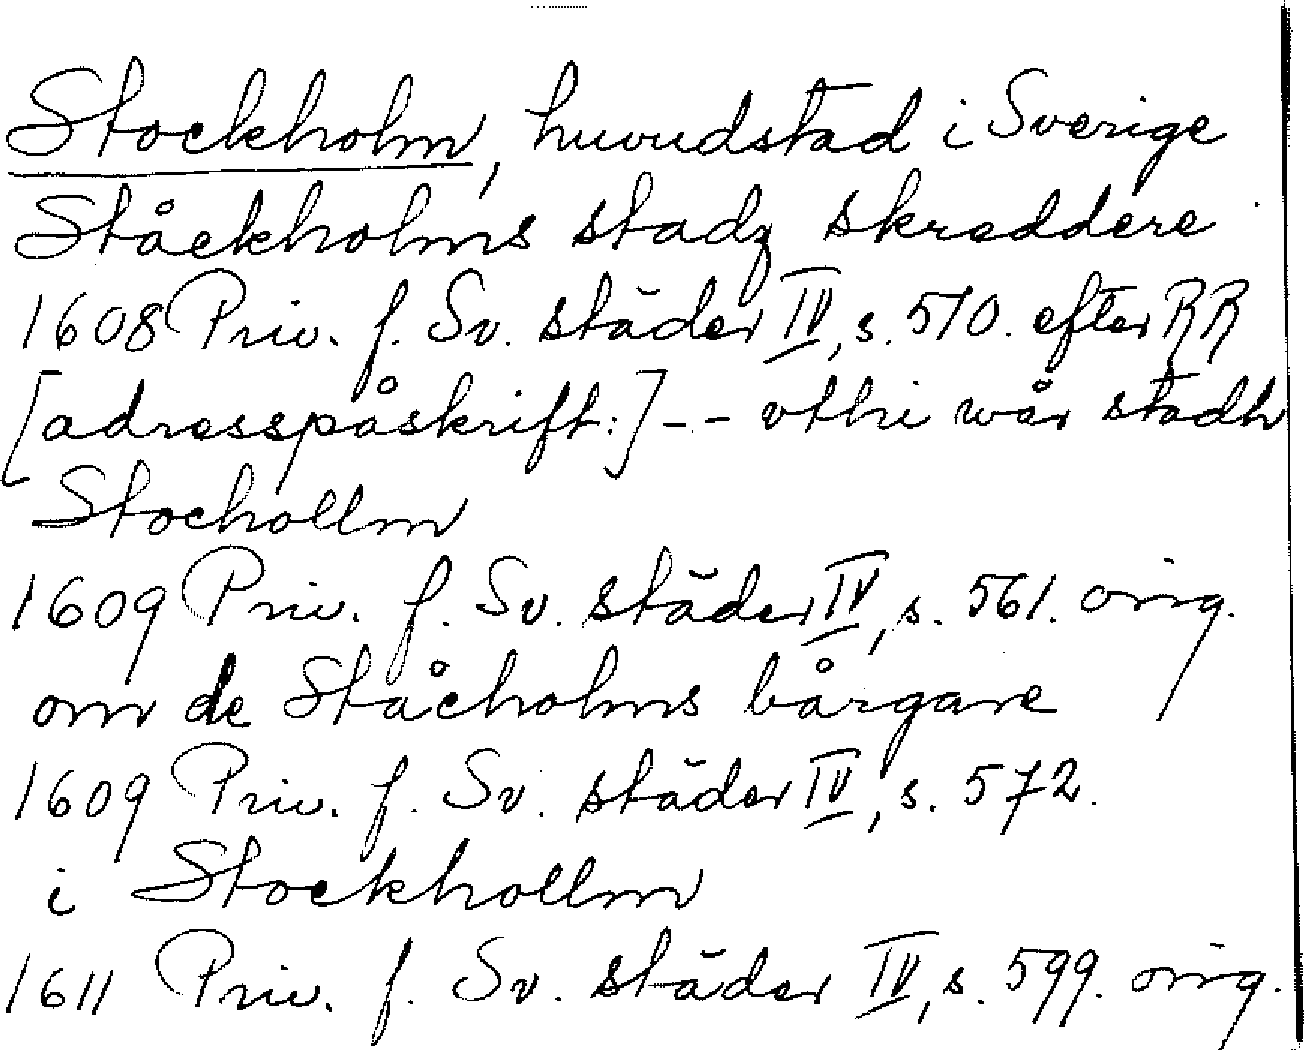 Stockholm, huvudstad i Sverige
Ståckholms stadz skreddere
1608 Priv. f. Sv. städer IV, s. 570. efter RR
[adresspåskrift:] - - vthi wår stadh
Stochollm
1609 Priv. f. Sv. städer IV, s. 561. orig.
om de Ståcholms bårgare
1609 Priv. f. Sv. städer IV, s. 572.
i Stockhollm
1611 Priv. f. Sv. städer IV, s. 599. orig.